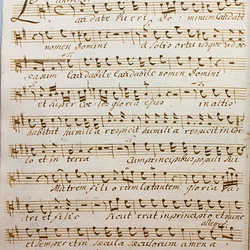 Laudate pueri Dominum laudate
nomen Domini a solis ortu usque ad oc
casum laudabile laudabile nomen Domini
et super coelos gloria ejus in altis
habitat humilia respicit humilia respicit in Coe
lo et in terra cum principibus populi sui
Matrem filiorum laetantem gloria Pa
tri et filio Sicut erat in principio et nunc
allegro
et semper et in saecula saeculorum amen a